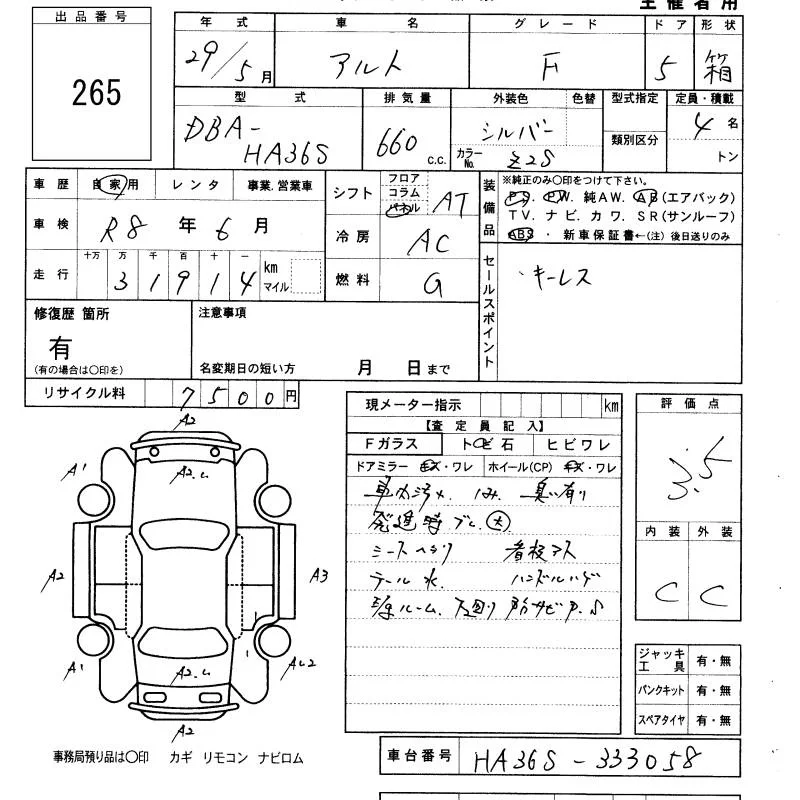 主催者用
出品番号
265
年式 車名 グレード ドア 形状
29/5月 アルト F 5 箱
型式 排気量 外装色 色替 型式指定 定員・積載
DBA-HA36S 660 c.c. シルバー カラーNo. Z2S 類別区分 4名 トン
車歴 自家用 レンタ 事業.営業車
車検 R8年6月
走行 十万 万 千 百 十 一 km マイル
31914
シフト フロア コラム パネル AT
冷房 AC
燃料 G
装備品 ※純正のみ〇印をつけて下さい。
PS. PW. 純AW. AB(エアバック)
TV. ナビ. カワ. SR(サンルーフ)
ABS ・ 新車保証書←(注)後日送りのみ
セールスポイント
キーレス
修復歴 箇所
有
(有の場合は〇印を)
注意事項
名変期日の短い方 月 日まで
リサイクル料 7500円
現メーター指示 km
【査定員記入】
Fガラス トビ石 ヒビワレ
ドアミラー キズ・ワレ ホイール(CP) キズ・ワレ
車内汚れ. 臭い有り
発進時ブレ. 大
シートヘタリ
テール水 ハンドルハゲ
評価点
3.5
内装 外装
C C
A2
A2
A1 A1
A2 A3
A1
A2
A2
ジャッキ工具 有・無
パンクキット 有・無
スペアタイヤ 有・無
事務局預り品は〇印 カギ リモコン ナビロム
車台番号 HA36S-333058